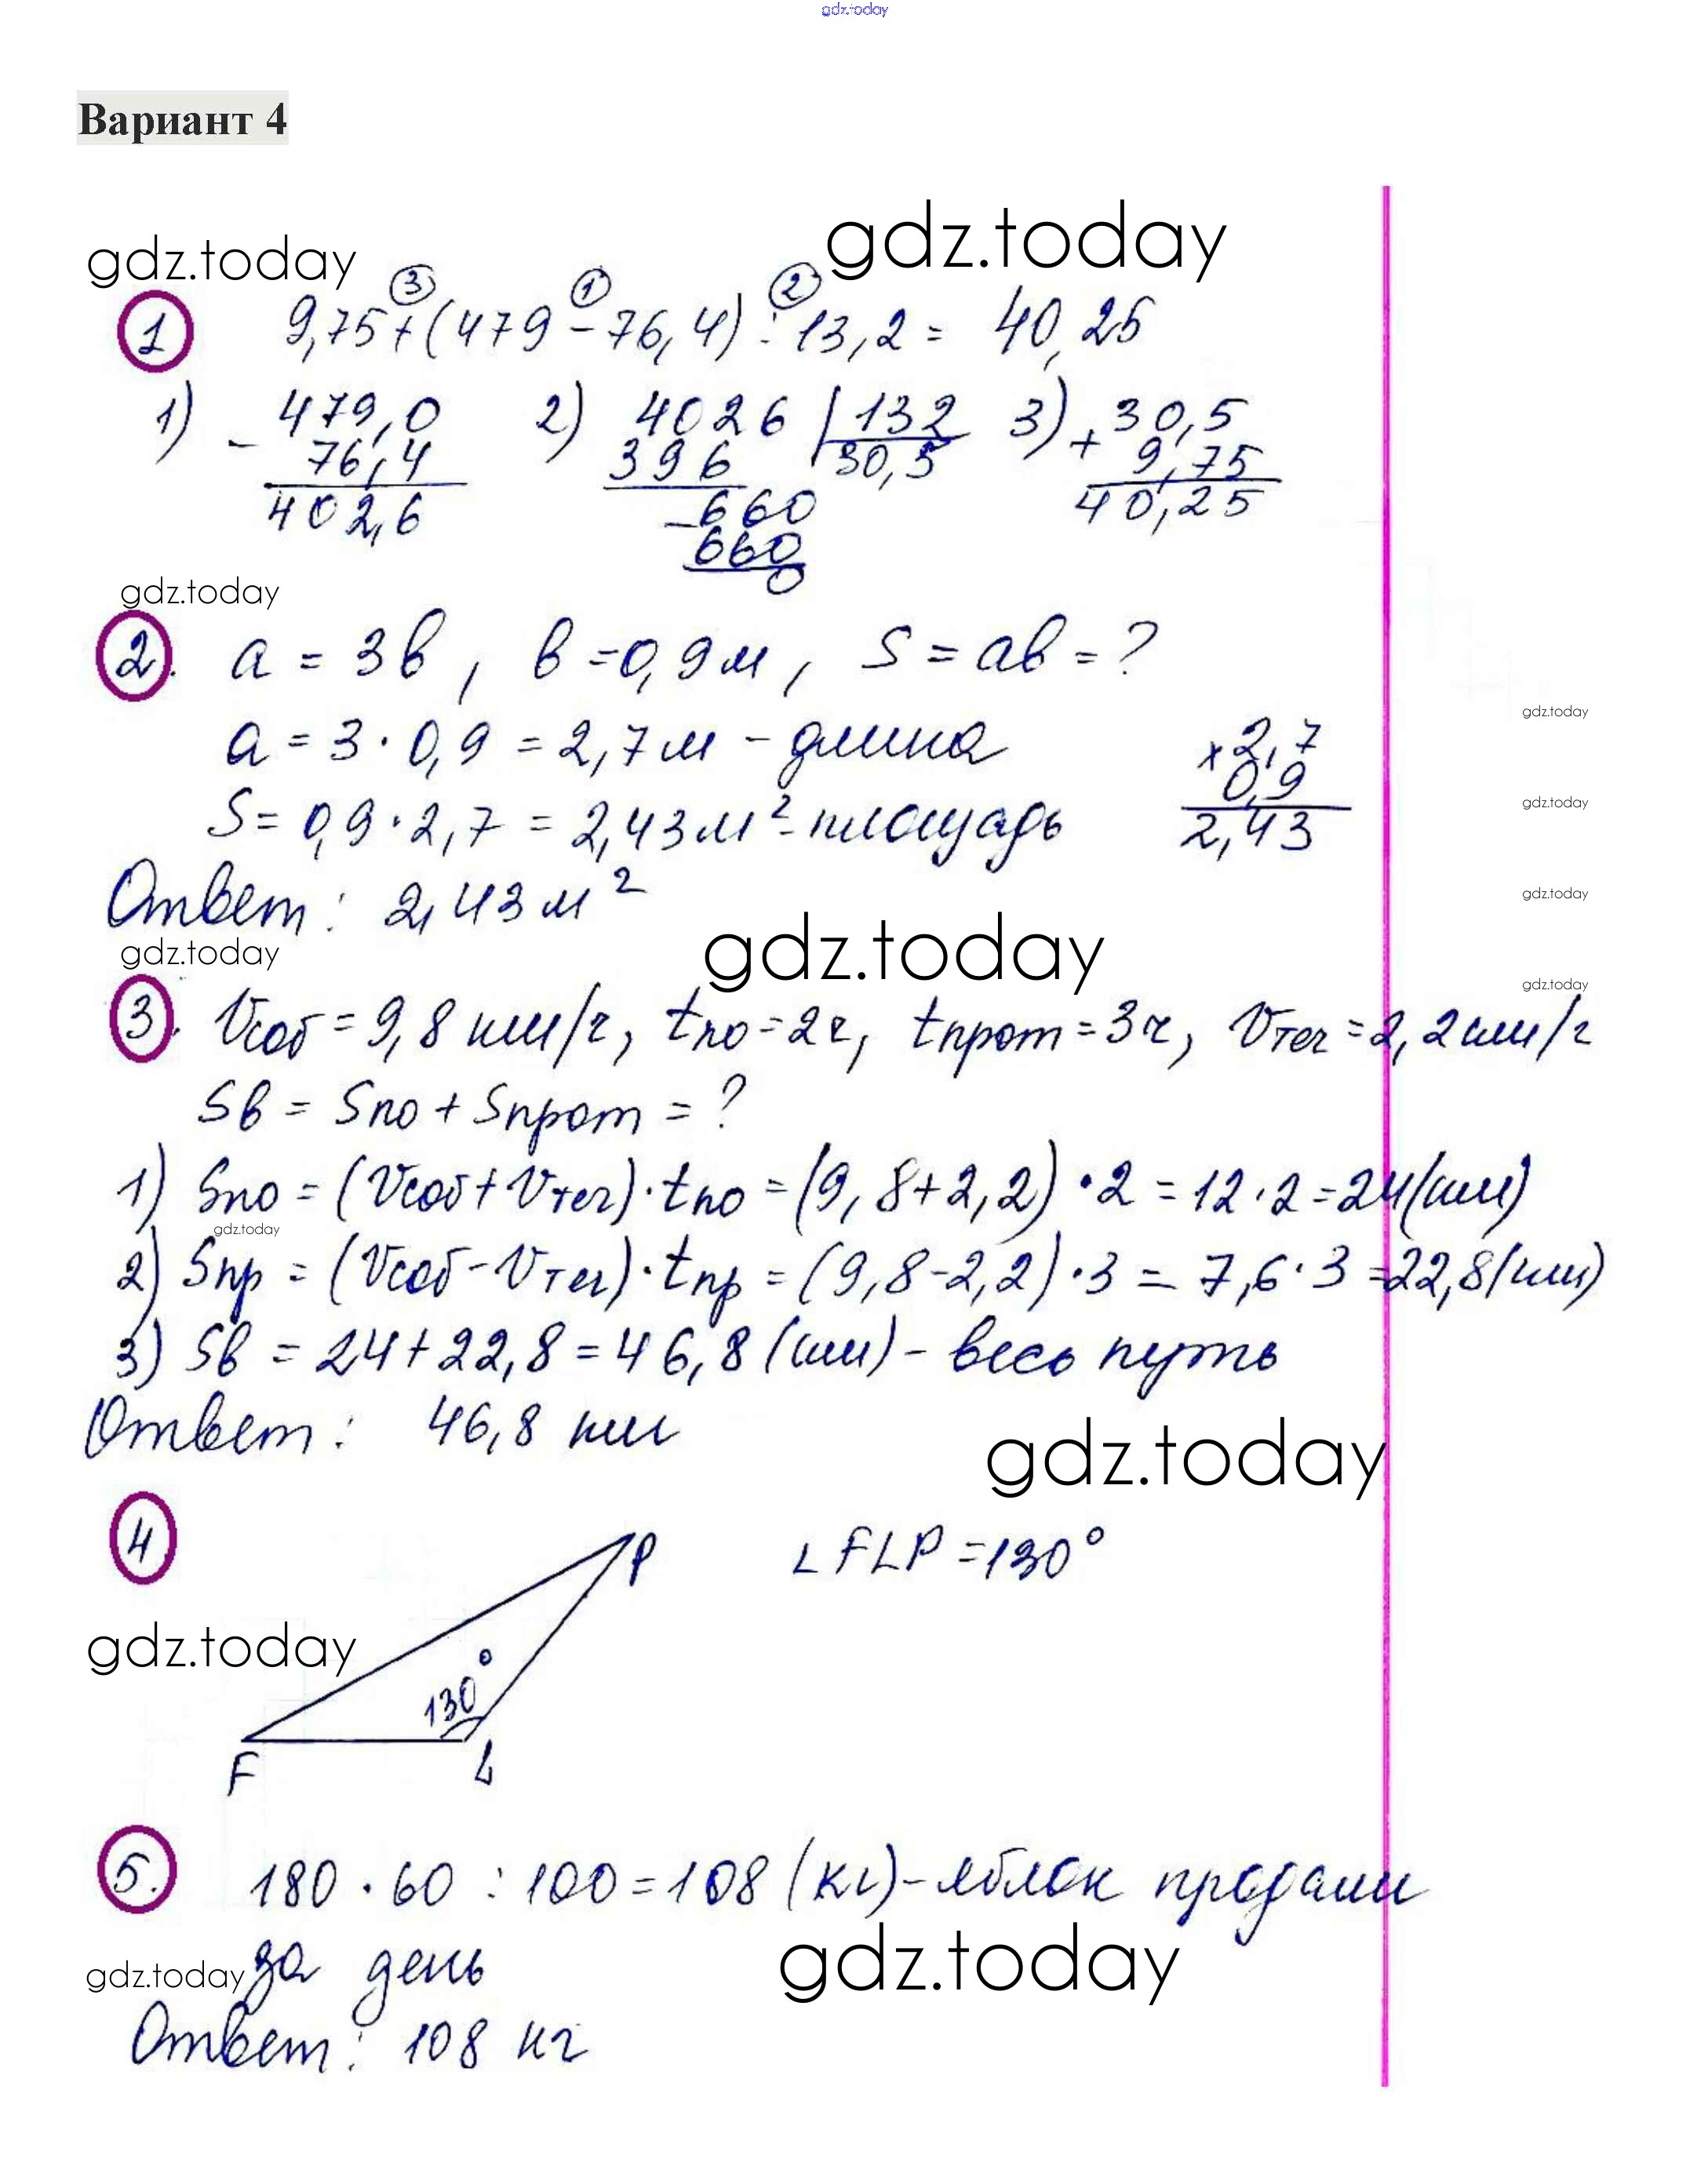 gdz.today
Вариант 4
gdz.today
gdz.today
③ ① ②
1 9,75+(479-76,4):13,2= 40,25
1) 479,0 2) 4026 | 132 3) + 30,5
- 76,4 396 30,5 9,75
402,6 -660 40,25
660
0
gdz.today
2. a = 3в, в=0,9м, S=aв=?
gdz.today
a = 3·0,9 = 2,7м - длина ×2,7
0,9
gdz.today
S= 0,9·2,7 = 2,43м²- площадь 2,43
Ответ: 2,43м²
gdz.today
gdz.today
gdz.today
gdz.today
3. Vсоб=9,8 км/ч, tпо=2ч, tпрот=3ч, Vтеч=2,2км/ч
Sв = Sпо + Sпрот = ?
1) Sпо = (Vсоб+Vтеч)·tпо=(9,8+2,2)·2=12·2=24(км)
gdz.today
2) Sпр = (Vсоб-Vтеч)·tпр=(9,8-2,2)·3=7,6·3=22,8(км)
3) Sв = 24+22,8=46,8(км)- весь путь
Ответ: 46,8 км
gdz.today
4
P ∠FLP=130°
gdz.today
130°
F L
5. 180·60:100=108 (кг)-яблок продали
за день
gdz.today
gdz.today
Ответ: 108 кг